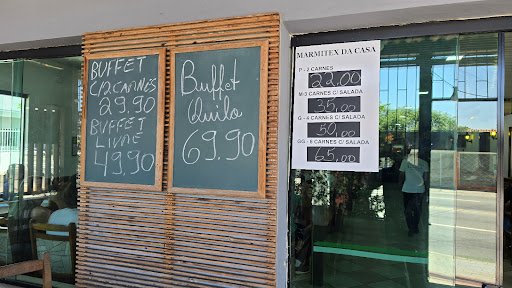 BUFFET
C/2 CARNES
29.90
BUFFET
LIVRE
49,90
Buffet
Quilo
69.90
MARMITEX DA CASA
P - 2 CARNES
22,00
M-3 CARNES C/ SALADA
35,00
G - 4 CARNES C/ SALADA
50,00
GG - 6 CARNES C/ SALADA
65,00